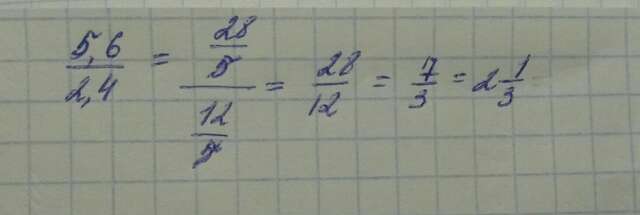 5,6/2,4 = (28/5)/(12/5) = 28/12 = 7/3 = 2 1/3